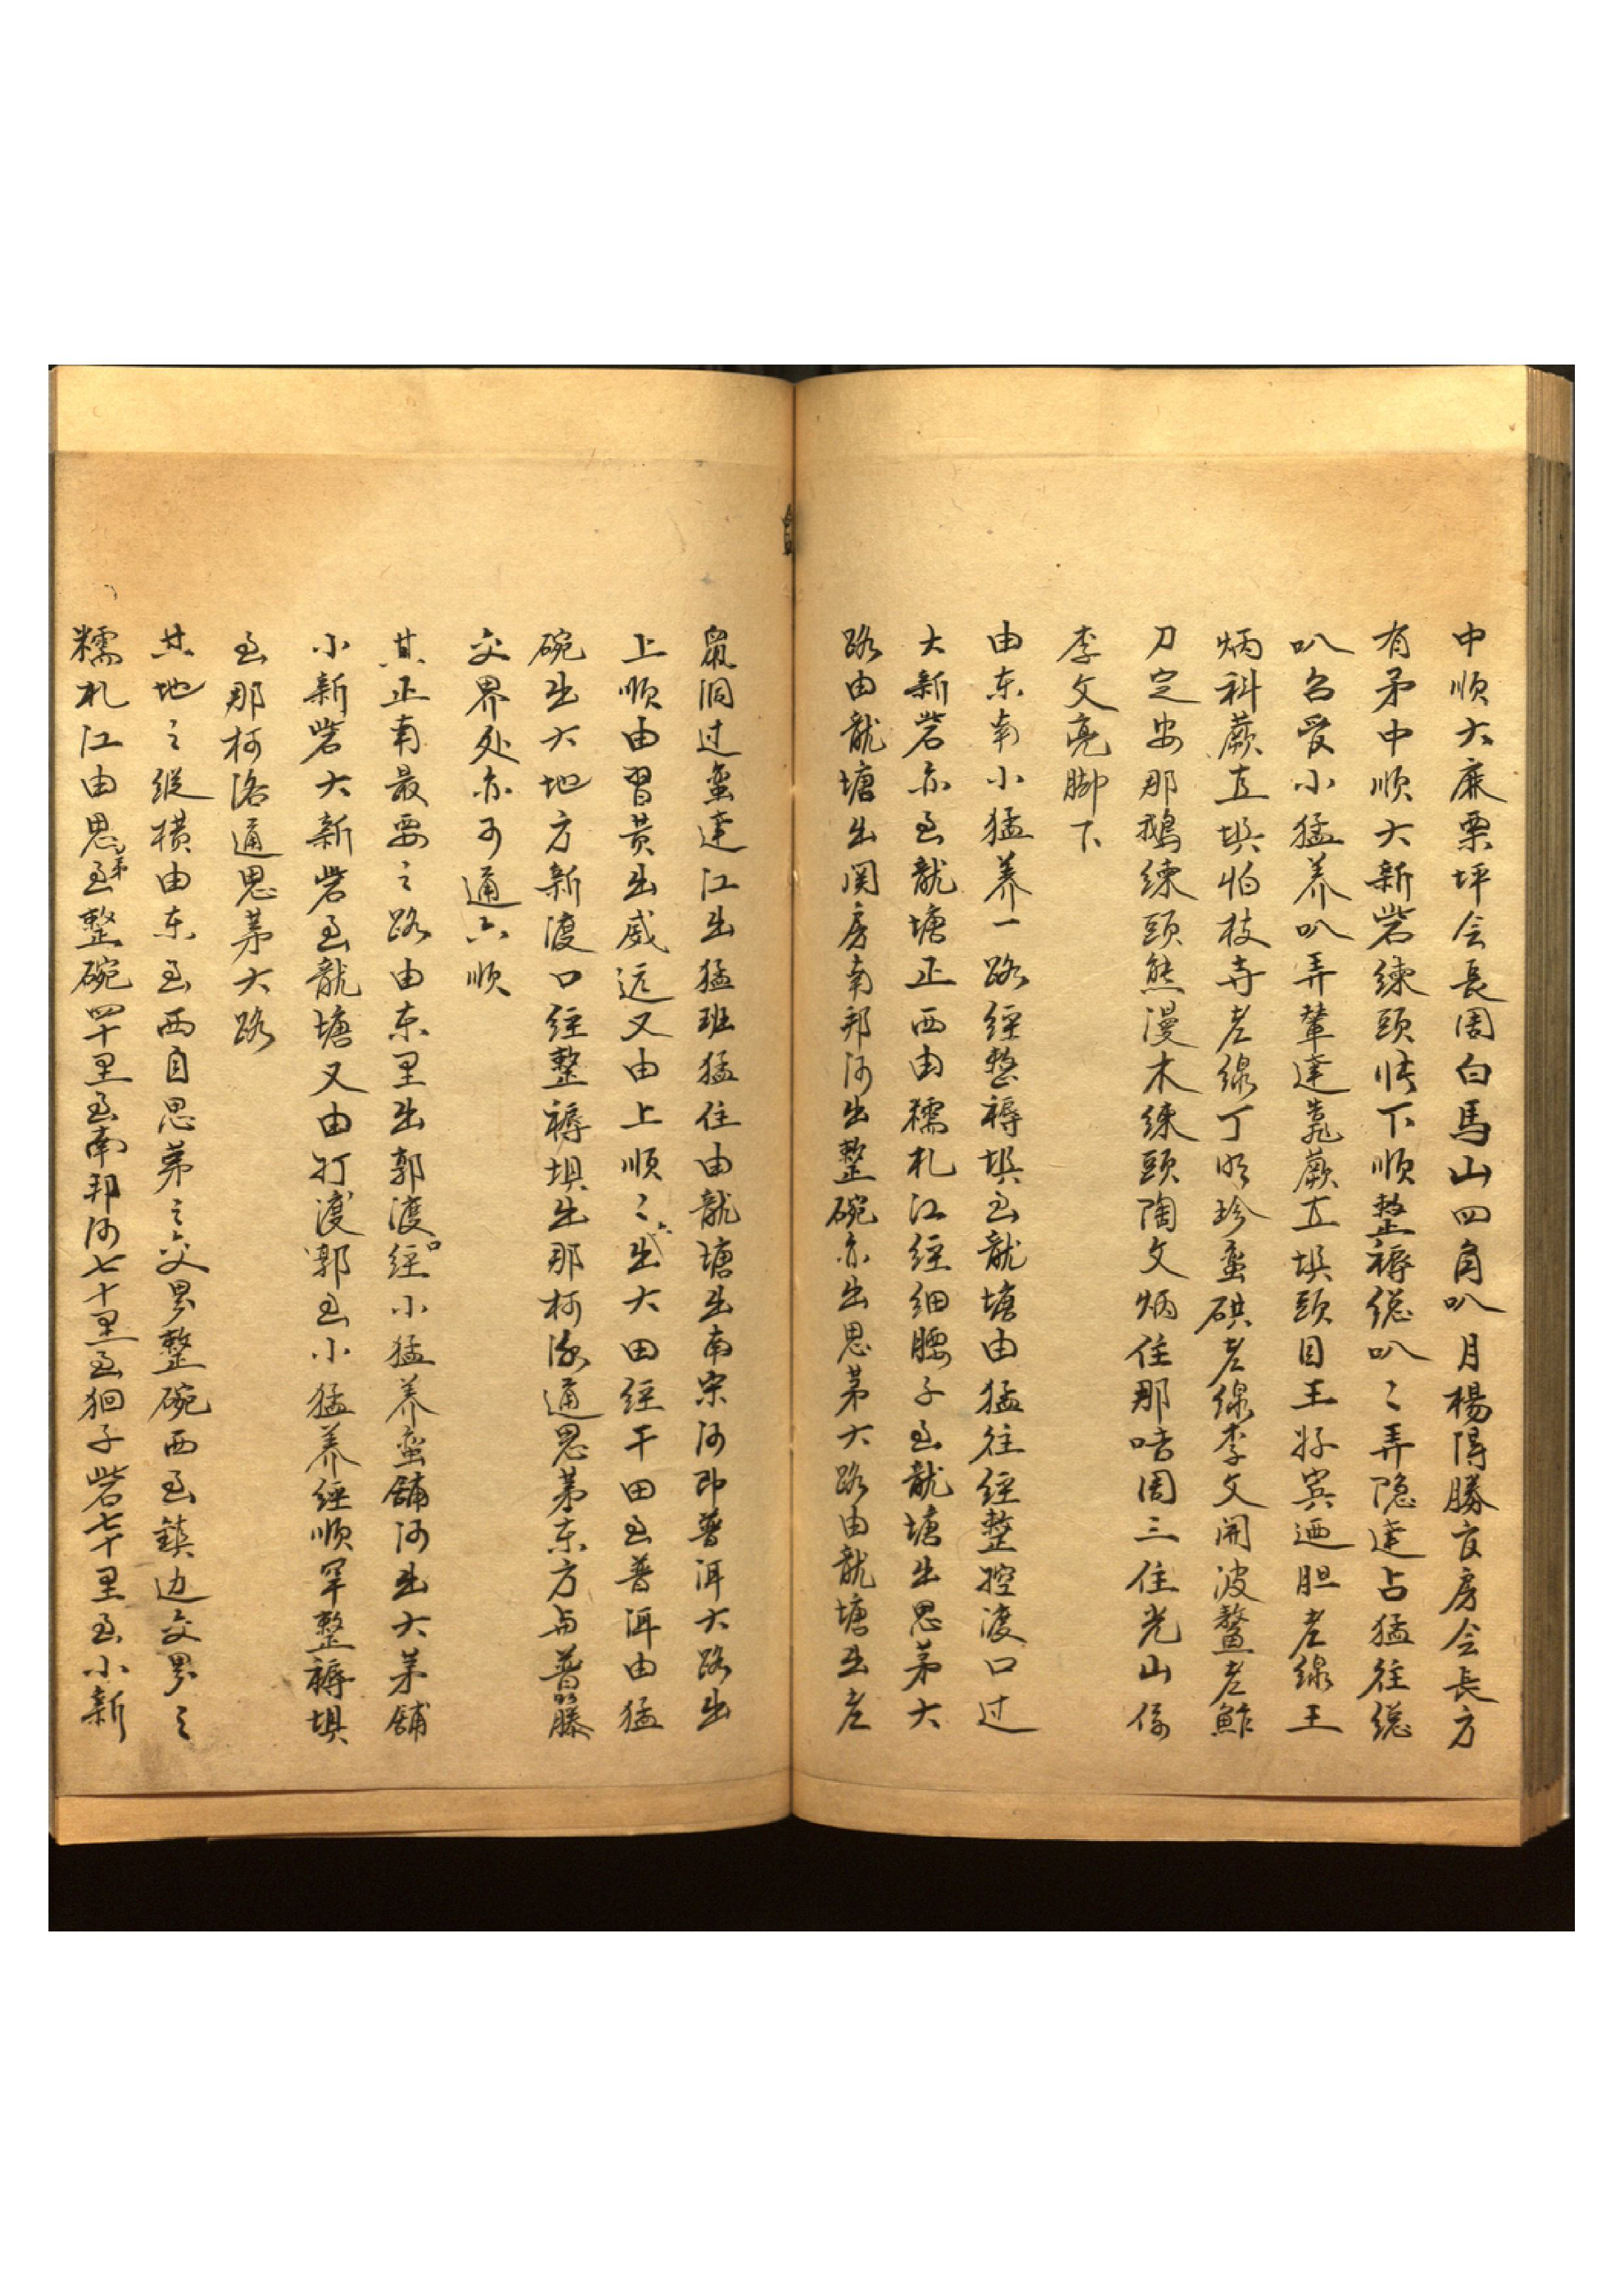 中順大麻栗坪会長周白馬山四角叭月楊得勝亥房会長方
有矛中順大新砦練頭怯下順整褥総叭〻弄隐達占猛往総
叭名受小猛养叭弄輦達靠蕨直埧頭目王好宾迺胆老線王
炳科蕨直埧怕枝寺老線丁明珍蛮磺老線李文開波鳌老鮓
刀定安那鵝練頭熊漫木練頭陶文炳住那唔周三住光山係
李文亮脚下
由东南小猛养一路經整褥埧至龍塘由猛往經整控渡口过
大新砦亦至龍塘正西由糯札江經细腰子至龍塘出思茅大
路由龍塘出関房南邦河出整碗亦出思茅大路由龍塘出老
鼠洞过蛮達江出猛班猛住由龍塘出南宋河即普洱大路出
上順由習黄出威远又由上順〻出大田經干田至普洱由猛
碗出大地方新渡口經整褥埧出那柯洛通思茅东方与普籐
交界处亦可通六順
其正南最要之路由东里出郭渡口經小猛养蛮舖河出大茅舖
小新砦大新砦至龍塘又由打渡郭至小猛养經順罕整褥埧
至那柯洛通思茅大路
其地之縱横由东至西自思茅之交界整碗西至鎮边交界之
糯札江由思茅至整碗四十里至南邦河七十里至狪子砦七十里至小新